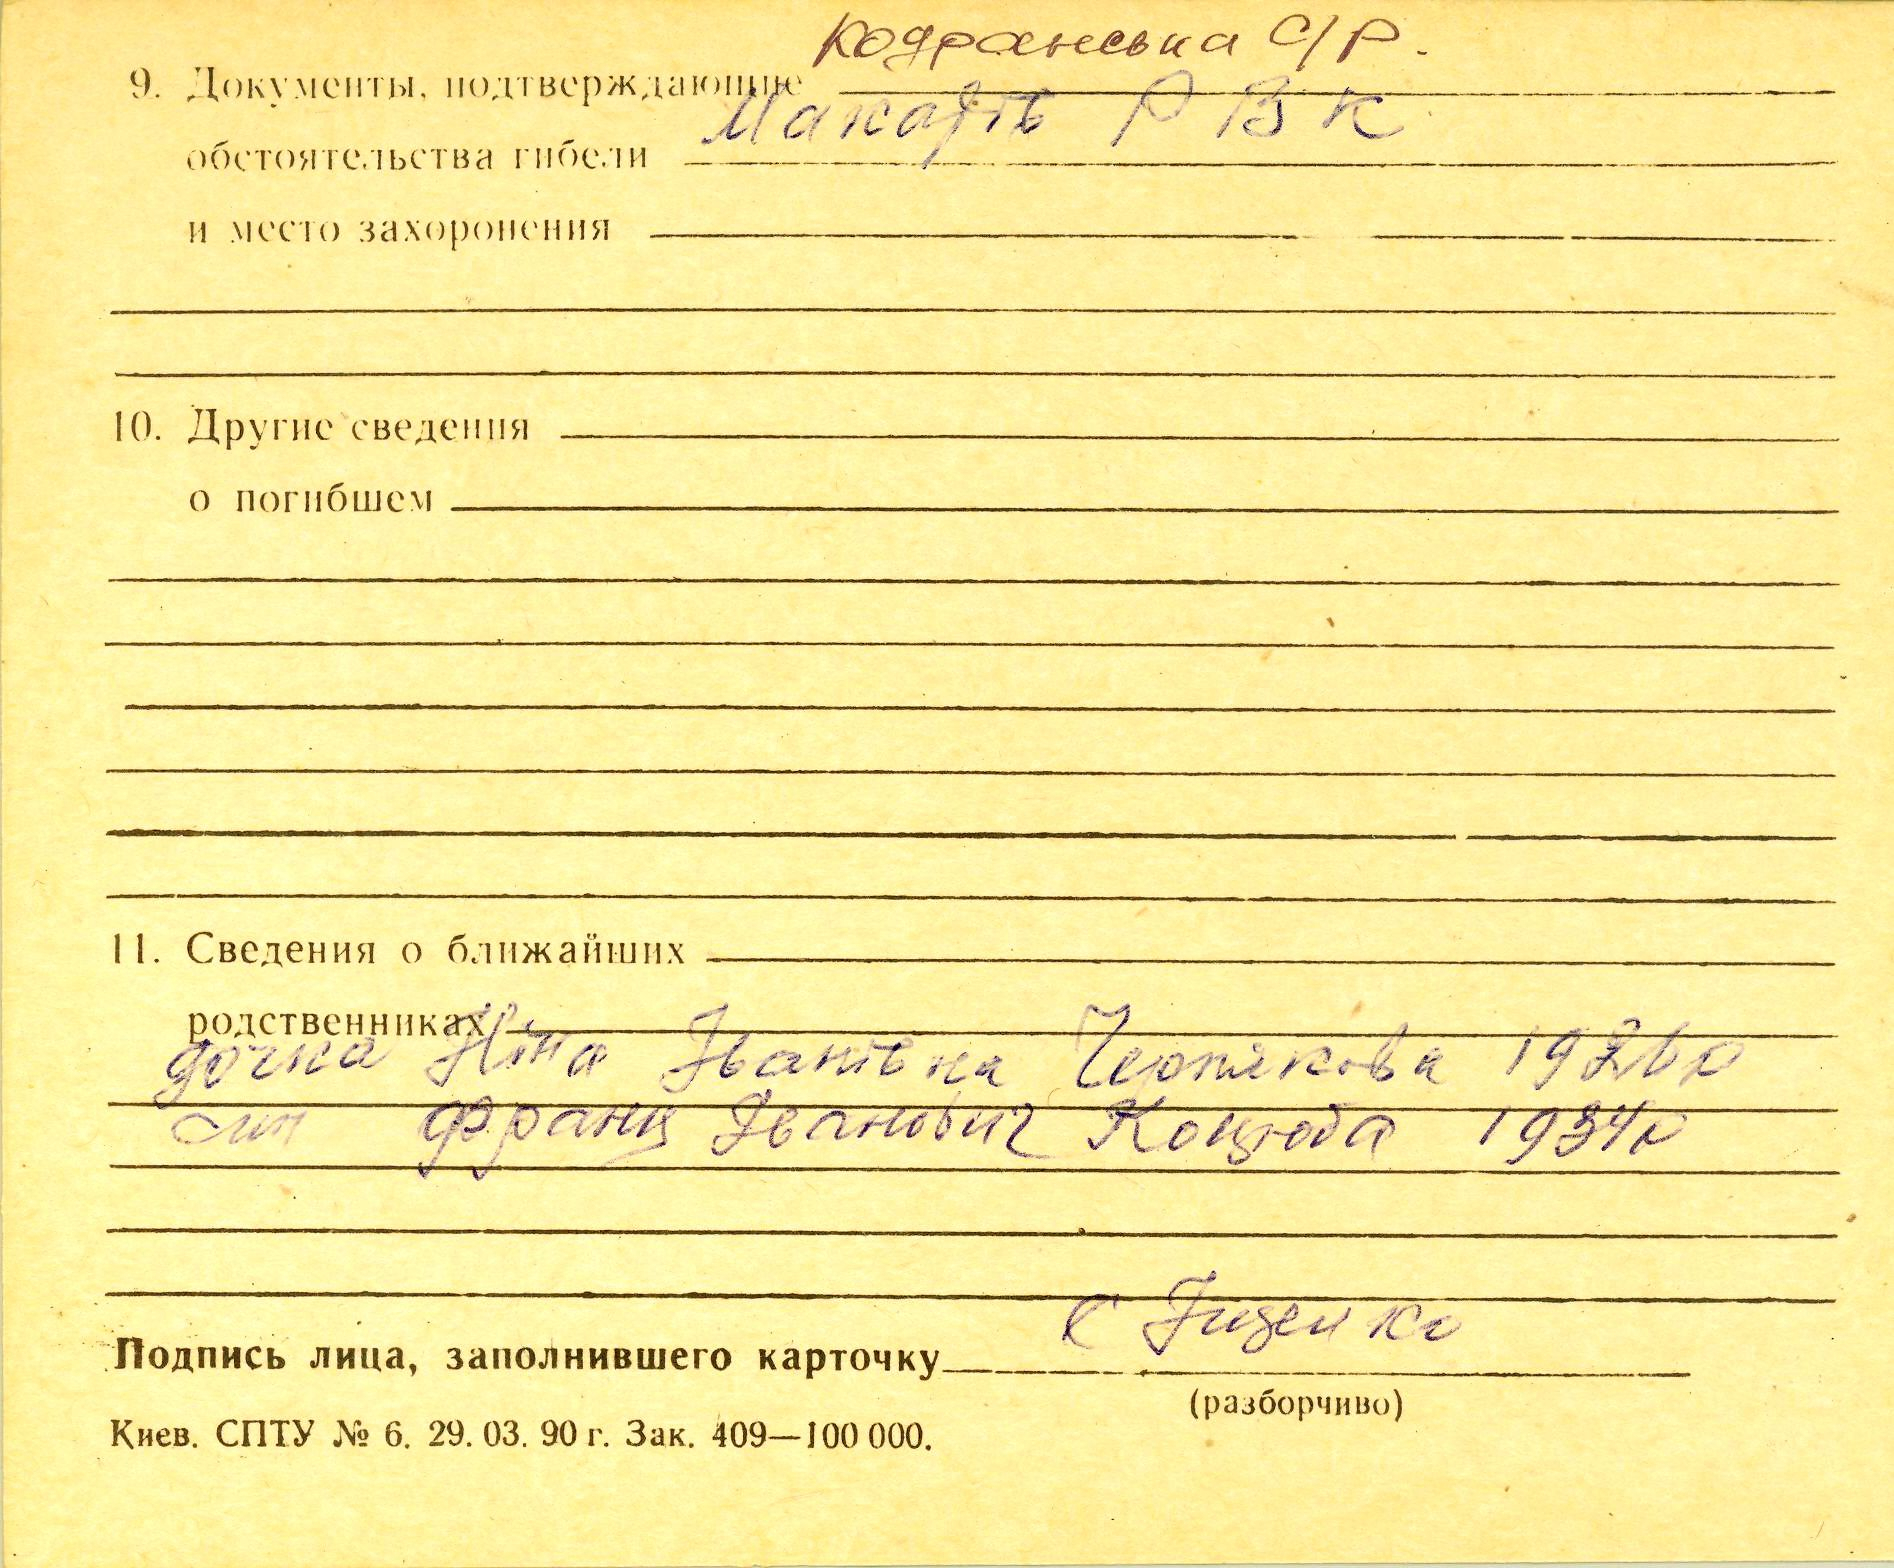 Кодранська С/Р.
9. Документы, подтверждающие
Макарів РВК
обстоятельства гибели
и место захоронения
10. Другие сведения
о погибшем
11. Сведения о ближайших
родственниках
дочка Ніна Іванівна Чернякова 1926р
син Франц Іванович Коцюба 1934р
Подпись лица, заполнившего карточку
(разборчиво)
Киев. СПТУ № 6. 29. 03. 90 г. Зак. 409—100 000.